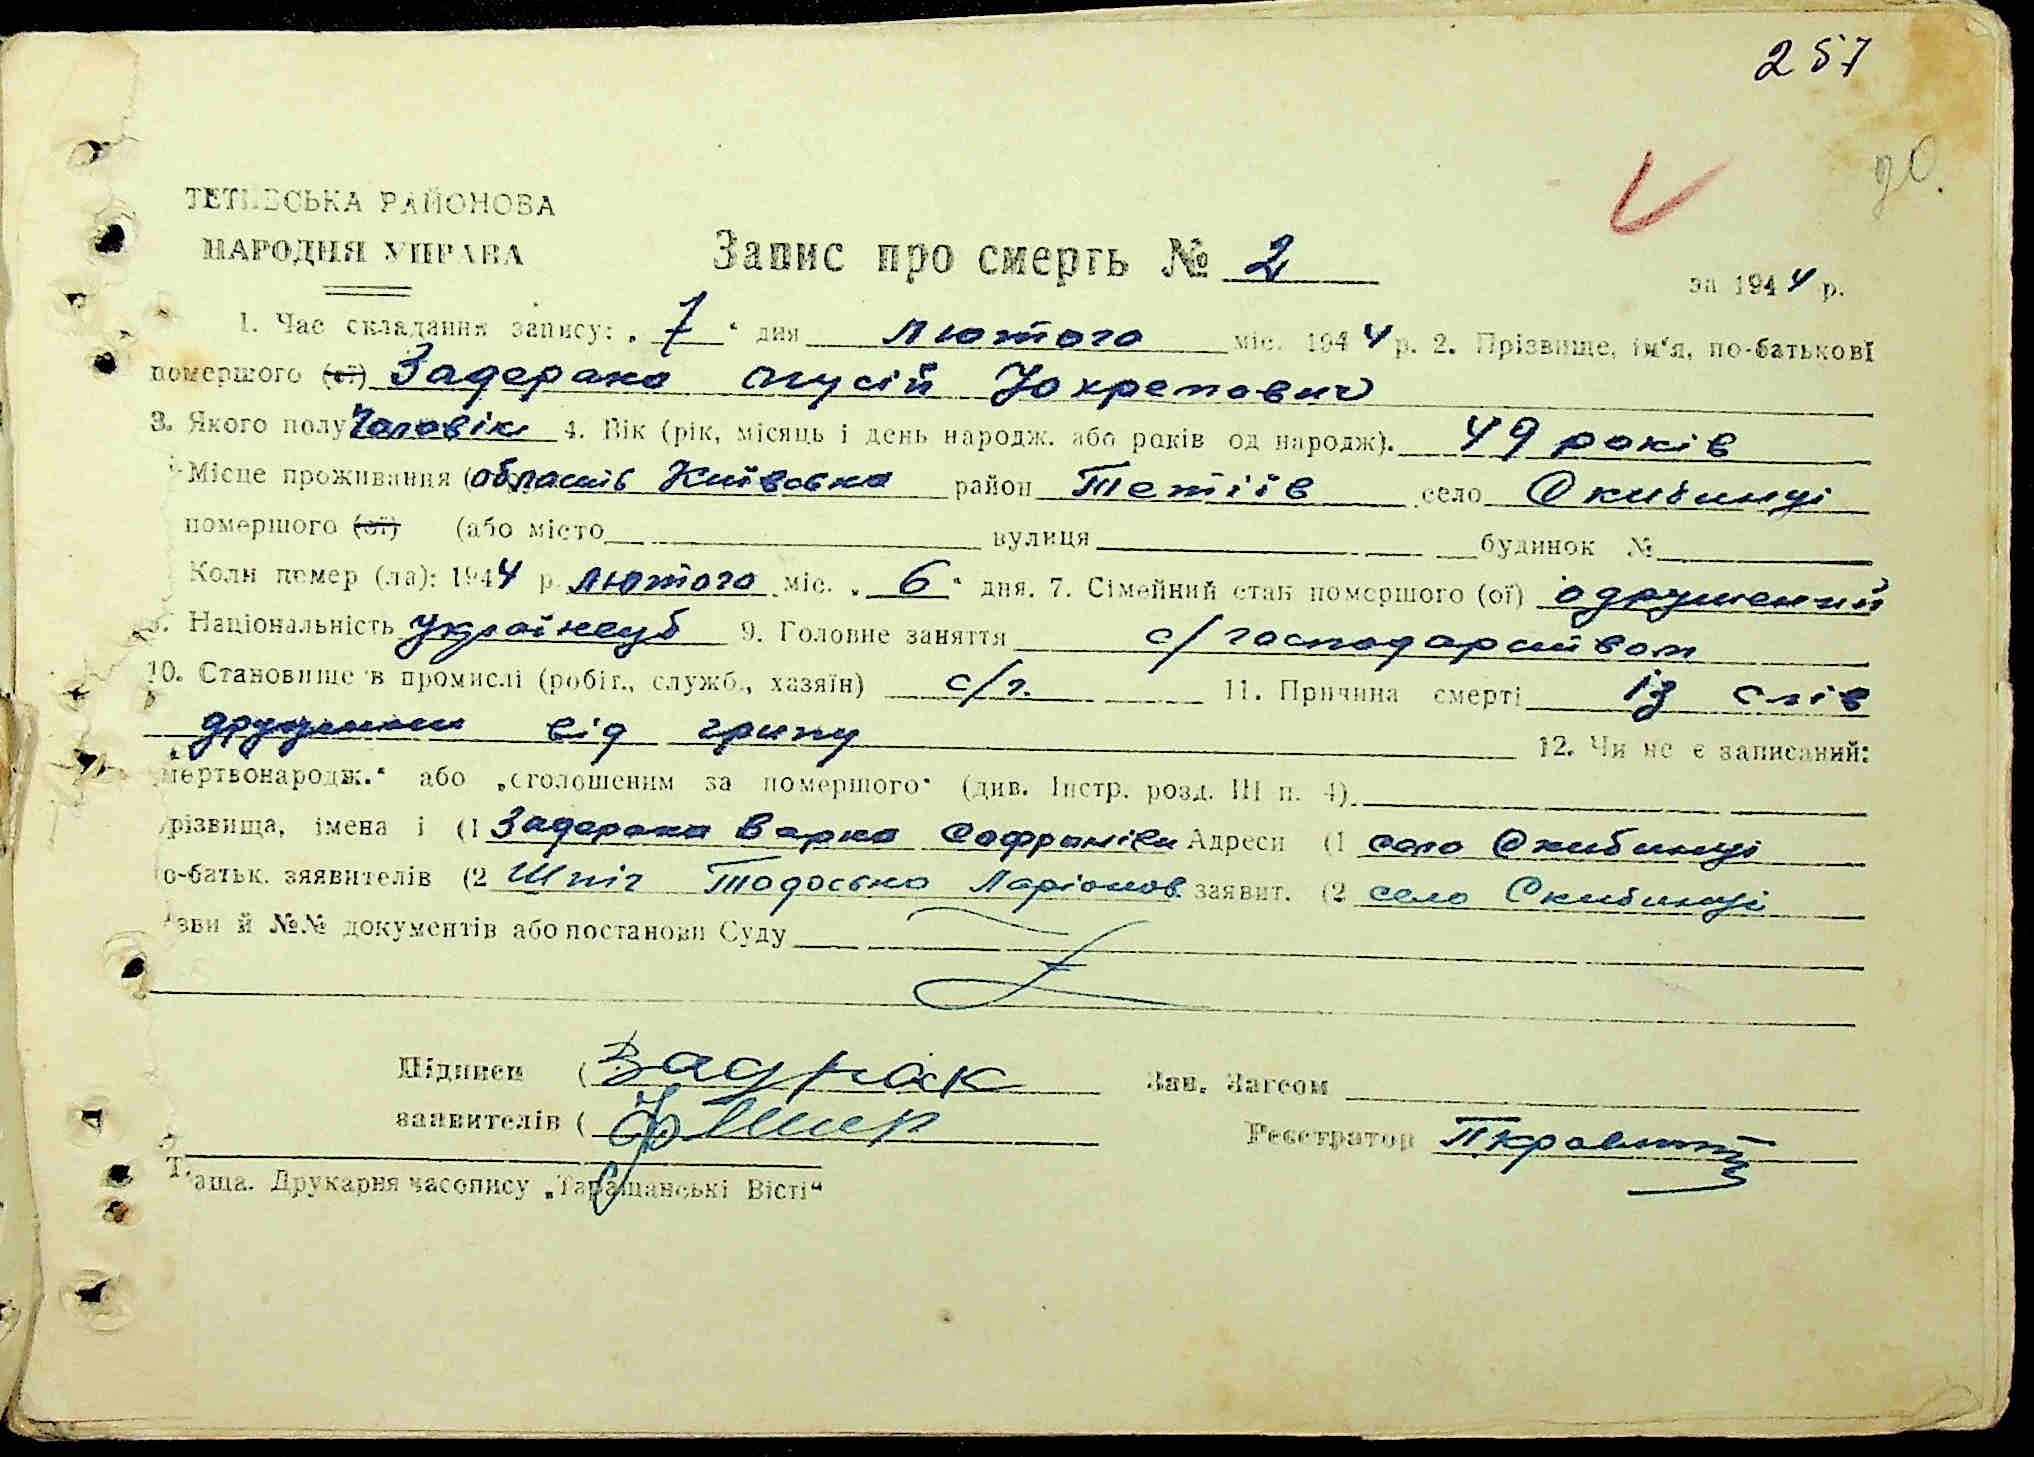 257
до.
ТЕТІЇВСЬКА РАЙОНОВА
НАРОДНЯ УПРАВА
Запис про смерть № 2
за 1944 р.
1. Час складання запису: „ 7 “ дня лютого міс. 1944 р. 2. Прізвище, ім'я, по-батькові
помершого (ої) Задерака Мусій Юхремович
3. Якого полу Чоловік 4. Вік (рік, місяць і день народж. або років од народж). 49 років
Місце проживання (область Київська район Тетіїв село Скибинці
помершого (ої) (або місто вулиця будинок №
Коли помер (ла): 1944 р. лютого міс. „ 6 “ дня. 7. Сімейний стан помершого (ої) одружений
8. Національність українець 9. Головне заняття с/господарством
10. Становище в промислі (робіт., служб., хазяїн) с/г. 11. Причина смерті із слів
дружини від грипу 12. Чи не є записаний:
мертвонародж.“ або „оголошеним за помершого“ (див. Інстр. розд. III п. 4).
різвища, імена і (1 Задерака Варка Софронівн Адреси (1 село Скибинці
о-батьк. заявителів (2 Шпіг Тодоська Ларіонов. заявит. (2 село Скибинці
зви й №№ документів або постанови Суду
Підписи ( Задрак Зав. Загсом
заявителів ( Реєстратор
Т.аща. Друкарня часопису „Таращанські Вісті“